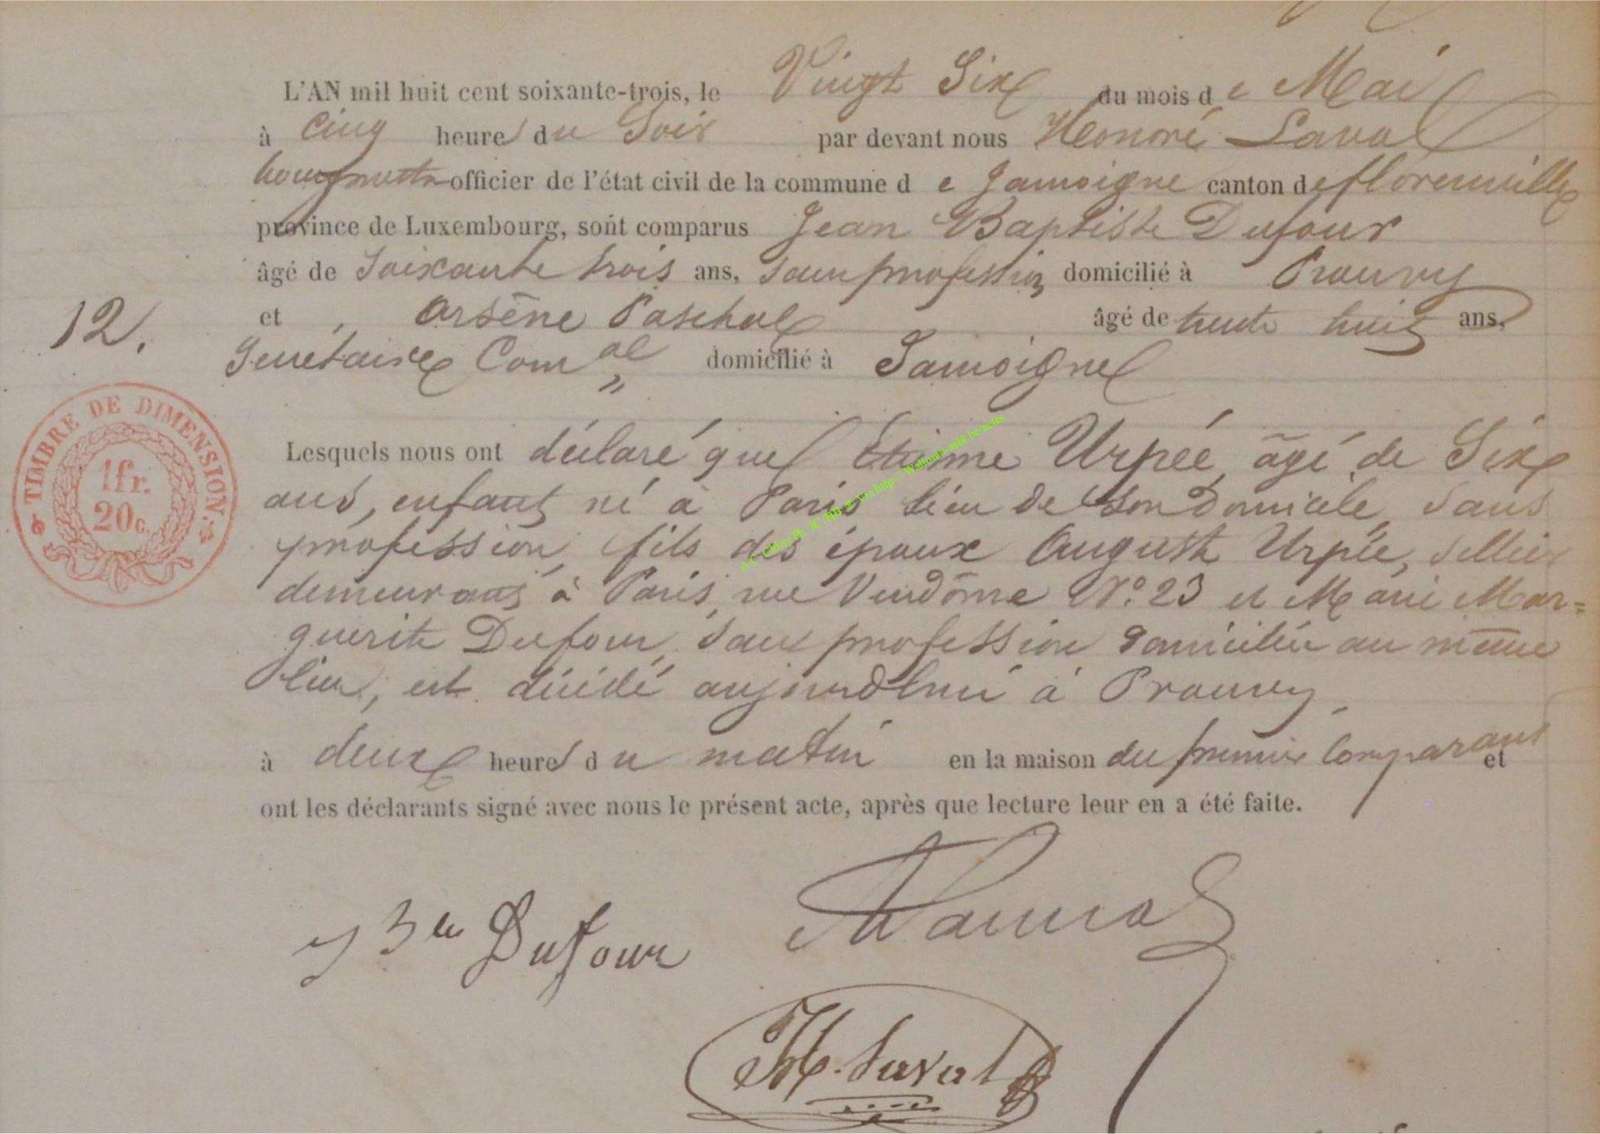 L'AN mil huit cent soixante-trois, le Vingt Six du mois d e Mai
à cinq heures du Soir par devant nous Honoré Laval
bourgmestre officier de l'état civil de la commune d e Jamoigne canton de florenville
province de Luxembourg, sont comparus Jean Baptiste Dufour
âgé de Soixante trois ans, sans profession domicilié à Prouvy
et Arsène Paschal âgé de trente huit ans,
12.
Secrétaire Com al domicilié à Jamoigne
TIMBRE DE DIMENSION
1fr.
20c.
Lesquels nous ont déclaré que Etienne Urpée, âgé de Six
ans, enfant né à Paris lieu de son domicile, sans
profession, fils des époux August Urpée, sellier
demeurant à Paris, rue Vendôme N° 23 et Marie Mar=
guerite Dufour, sans profession domiciliée au même
lieu, est décédé aujourd'hui à Prouvy,
à deux heures du matin en la maison du premier Comparant et
ont les déclarants signé avec nous le présent acte, après que lecture leur en a été faite.
J Bte Dufour
H. Laval